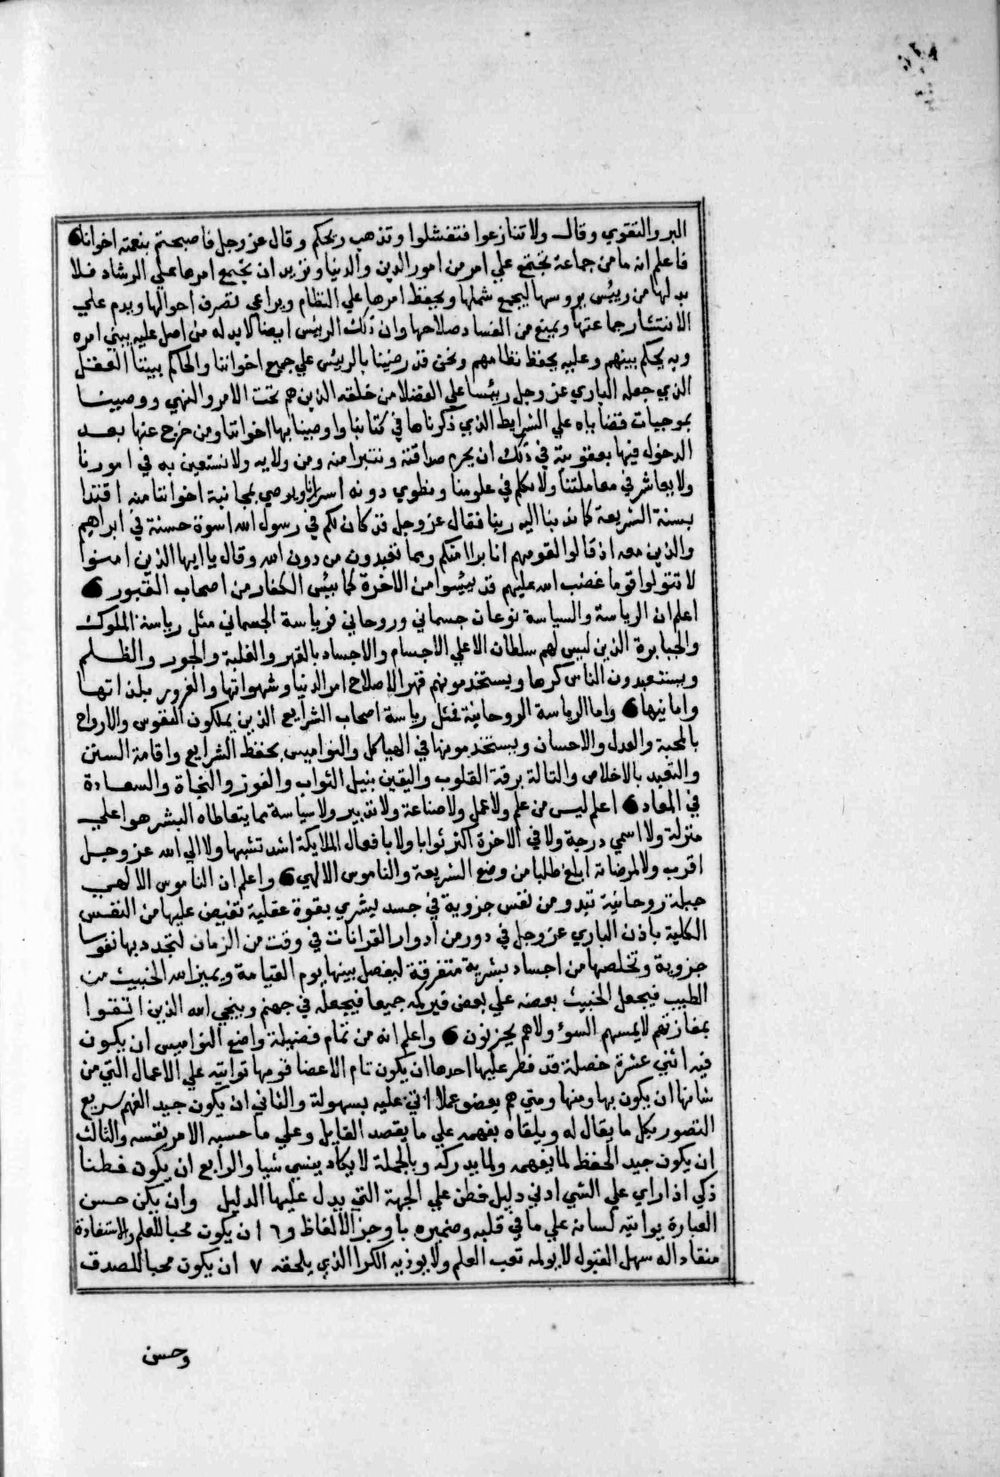 البر والتقوي وقال ولا تنازعوا فتفشلوا وتذهب ريحكم وقال عز وجل فاصبحتم بنعمته اخوانا
فاعلم انه ما من جماعة تجتمع علي امر من امور الدين والدنيا وتريد ان يجتمع امرها علي الرشاد فلا
بد لها من رييس يروسها ليجمع شملها ويحفظ امرها علي النظام ويراعي تصرف احوالها ويرم علي
الانتشار جماعتها ويمنع من الفساد صلاحها وان ذلك الرييس ايضا لابد له من اصل عليه يبني امره
وبه يحكم بينهم وعليه يحفظ نظامهم ونحن قد رضينا بالرييس علي جميع اخواننا والحاكم بيننا العقل
الذي جعله الباري عز وجل رييسا علي الفضلا من خلقه الذين هم تحت الامر والنهي ورضينا
بموجبات قضاياه علي الشرايط الذي ذكرناها في كتابنا واوصينا بها اخواننا ومن خرج عنها بعد
الدخول فيها بعقوبته في ذلك ان يحرم صداقته ونتبرا منه ومن ولايه ولا نستعين به في امورنا
ولا يعاشر في معاملتنا ولا يكلم في علومنا ونطوي دونه اسرارنا ويوصي بمجانبة اخواننا منه اقتدا
بسنة الشريعة كما ندبنا اليه ربنا فقال عز وجل قد كان لكم في رسول الله اسوة حسنة في ابراهيم
والذين معه اذ قالوا لقومهم انا براا منكم ومما تعبدون من دون الله وقال يا ايها الذين امنوا
لا تتولوا قوما غضب الله عليهم قد ييسوا من الاخرة كما ييس الكفار من اصحاب القبور
اعلم ان الرياسة والسياسة نوعان جسماني وروحاني فرياسة الجسماني مثل رياسة الملوك
والجبابرة الذين ليس لهم سلطان الا علي الاجسام والاجساد بالقهر والغلبة والجور والظلم
ويستعبدون الناس كرها ويستخدمونهم قهرا لاصلاح امر الدنيا وشهواتها والغرور بلذاتها
وامانيها واما الرياسة الروحانية فمثل رياسة اصحاب الشرايع الذين يملكون النفوس والارواح
بالمحبة والعدل والاحسان ويستخدمونها في الهياكل والنواميس بحفظ الشرايع واقامة السنن
والتعبد بالاخلاص والتاله برقة القلوب واليقين بنيل الثواب والفوز والنجاة والسعادة
في المعاد اعلم ليس من علم ولا عمل ولا صناعة ولا تدبير ولا سياسة مما يتعاطاه البشر هو اعلي
منزلة ولا اسمي درجة ولا في الاخرة اكثر ثوابا ولا بافعال الملايكة اشد تشبها ولا الي الله عز وجل
اقرب ولا لمرضاته ابلغ طلبا من وضع الشريعة والناموس الالهي واعلم ان الناموس الالهي
جبلة روحانية تبدو من نفس جزوية في جسد بشري بقوة عقلية تفيض عليها من النفس
الكلية باذن الباري عز وجل في دور من ادوار القرانات في وقت من الزمان لتجدد بها نفوسا
جزوية وتخلصها من اجساد بشرية متفرقة ليفصل بينها يوم القيامة ويميز الله الخبيث من
الطيب فيجعل الخبيث بعضه علي بعض فيركمه جميعا فيجعله في جهنم وينجي الله الذين اتقوا
بمفازتهم لا يمسهم السوء ولا هم يحزنون واعلم انه من تمام فضيلة واضع النواميس ان يكون
فيه اثني عشرة خصلة قد فطر عليها احدها ان يكون تام الاعضا قومها تواتيه علي الاعمال التي من
شانها ان يكون بها ومنها ومتي هم بعضو عملا اتي عليه بسهولة والثاني ان يكون جيد الفهم سريع
التصور بكل ما يقال له ويلقاه بفهمه علي ما يقصد القايل وعلي ما حسبه الامر بنفسه والثالث
ان يكون جيد الحفظ لما يفهمه ولما يدركه وبالجملة لا يكاد ينسي شيا والرابع ان يكون فطنا
ذكي اذا راي علي الشي ادني دليل فطن علي الجهة التي يدل عليها الدليل وان يكن حسن
العبارة يواتيه لسانه علي ما في قلبه وضميره باوجز الالفاظ و٦ ان يكون محبا للعلم والاستفادة
منقادا له سهل القبول لا يولمه تعب العلم ولا يوذيه الكرا الذي يلحقه ٧ ان يكون محبا للصدق
وحسن